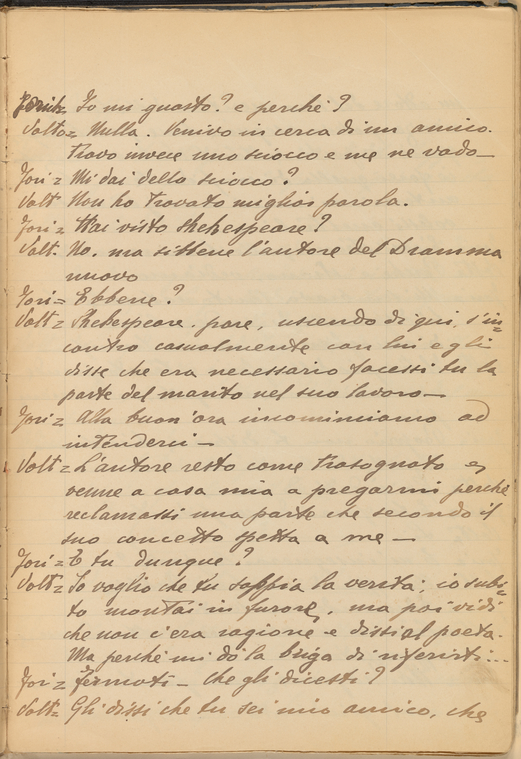 Jorik= Io mi guasto? e perchè?
Volto= Nulla. Venivo in cerca di un amico.
trovo invece uno sciocco e me ne vado—
Jori= Mi dai dello sciocco?
Volt Non ho trovato miglior parola.
Jori= Hai visto Shekespeare?
Volt. No, ma sibbene l'autore del Dramma
nuovo
Jori= Ebbene?
Volt= Shekespeare, pare, uscendo di qui, s'in=
contro casualmente con lui e gli
disse che era necessario facessi tu la
parte del marito nel suo lavoro—
Jori= Alla buon'ora incominciamo ad
intenderci—
Volt= L'autore resto come trasognato e,
venne a casa mia a pregarmi perchè
reclamassi una parte che secondo il
suo concetto spetta a me—
Jori= E tu dunque?
Volt= Io voglio che tu sappia la verità; io subi=
to montai in furore, ma poi vidi
che non c'era ragione e dissi al poeta.
Ma perchè mi dò la briga di riferirti...
Jori= Fermati— che gli dicesti?
Volt= Gli dissi che tu sei mio amico, che